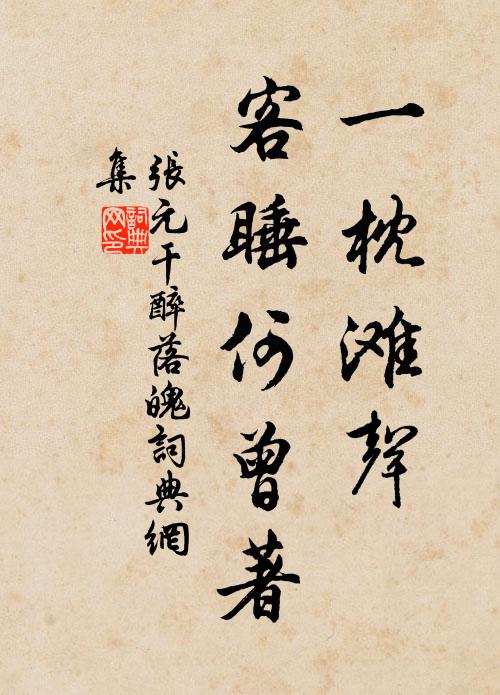 一枕滩聲
客睡何曾著
張元干醉落魄詞典網
集
詞典網印